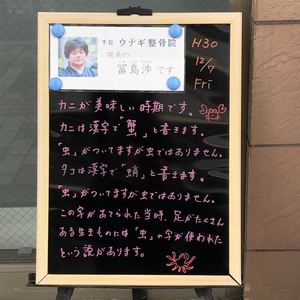 千石 ウナギ整骨院
院長の
冨島渉です
H30
12/7
Fri
カニが美味しい時期です。
カニは漢字で「蟹」と書きます。
「虫」がついてますが虫ではありません。
タコは漢字で「蛸」と書きます。
「虫」がついてますが虫ではありません。
この字があてられた当時、足がたくさん
ある生きものには「虫」の字が使われた
という説があります。